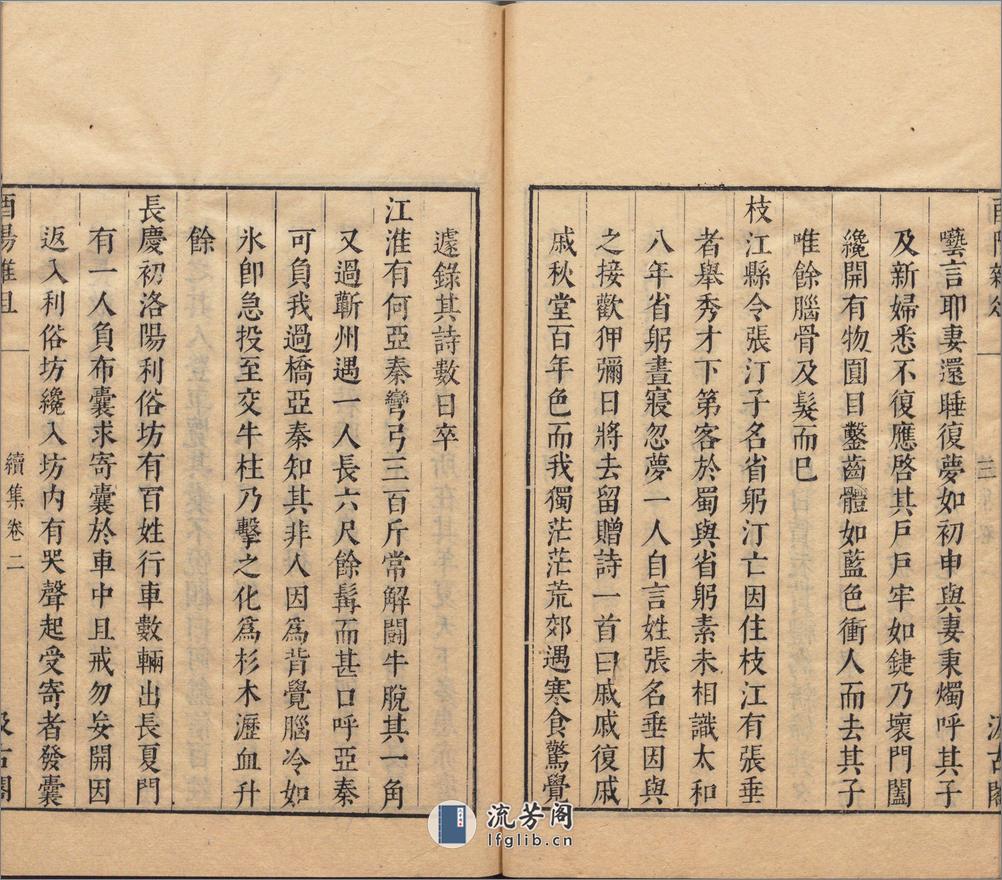 囈言耶妻還睡復夢如初申與妻秉燭呼其子
及新婦悉不復應啓其戶戶牢如鍵乃壞門闔
纔開有物圓目鑿齒體如藍色衝人而去其子
唯餘腦骨及髮而巳
枝江縣令張汀子名省躬汀亡因住枝江有張垂
者舉秀才下第客於蜀與省躬素未相識太和
八年省躬晝寢忽夢一人自言姓張名垂因與
之接歡狎彌日將去留贈詩一首曰戚戚復戚
戚秋堂百年色而我獨茫茫荒郊遇寒食驚覺
遽錄其詩數日卒
江淮有何亞秦彎弓三百斤常解鬭牛脫其一角
又過蘄州遇一人長六尺餘髯而甚口呼亞秦
可負我過橋亞秦知其非人因爲背覺腦冷如
氷卽急投至交牛柱乃擊之化爲杉木瀝血升
餘
長慶初洛陽利俗坊有百姓行車數輛出長夏門
有一人負布囊求寄囊於車中且戒勿妄開因
返入利俗坊纔入坊內有哭聲起受寄者發囊
續集卷二
流芳阁
lfglib.cn